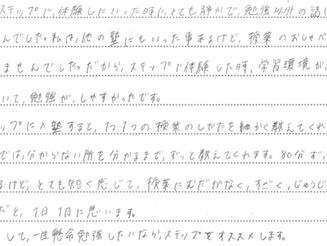 ステップに、体験しにいった時に、とても静かで、勉強以外の話し
んでした。私は、他の塾にもいった事あるけど、授業のおしゃべ
ませんでした。だから、ステップに体験した時、学習環境が、
いて、勉強が、しやすかったです。
ップに入塾すると、1つ1つの授業のしかたを細かく教えてくれ
では、分からない所を分かるまで、ずっと教えてくれます。80分ず、
るけど、とても短く感じて、授業にむだがなく、すごく、じゅうじ
だと、1日1日に思います。
して、一生懸命勉強したいなら、ステップをオススメします。